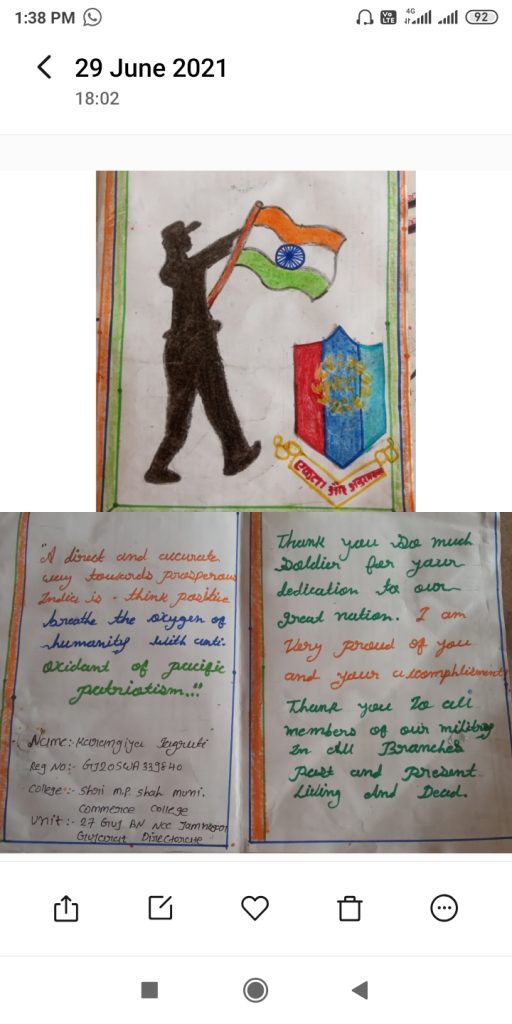 1:38 PM
4G
Vo
LTE
92
29 June 2021
18:02
एकता और अनुशासन
"A direct and accurate
way towards prosperous
India is - think positive
breathe the oxygen of
humanity with anti-
oxidant of pacific
patriotism.."
Name:-
Reg No:- GJ20SWA339840
College:- Shri m.p. shah muni.
Commerce College
Unit:- 27 Guj BN NCC Jamnagar
Gujarat Directorate
Thank you so much
Soldier for your
dedication to our
great nation. I am
Very proud of you
and your accomplishment
Thank you to all
members of our military
In All Branches
Past and Present
Living And Dead.